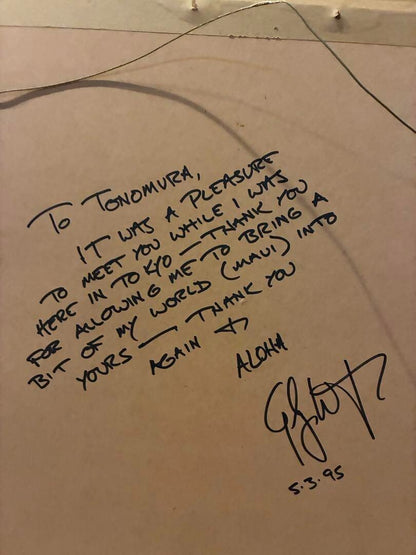 To TONOMURA,
IT WAS A PLEASURE
TO MEET YOU WHILE I WAS
HERE IN TOKYO — THANK YOU
FOR ALLOWING ME TO BRING A
BIT OF MY WORLD (MAUI) INTO
YOURS — THANK YOU
AGAIN &
ALOHA
5.3.95